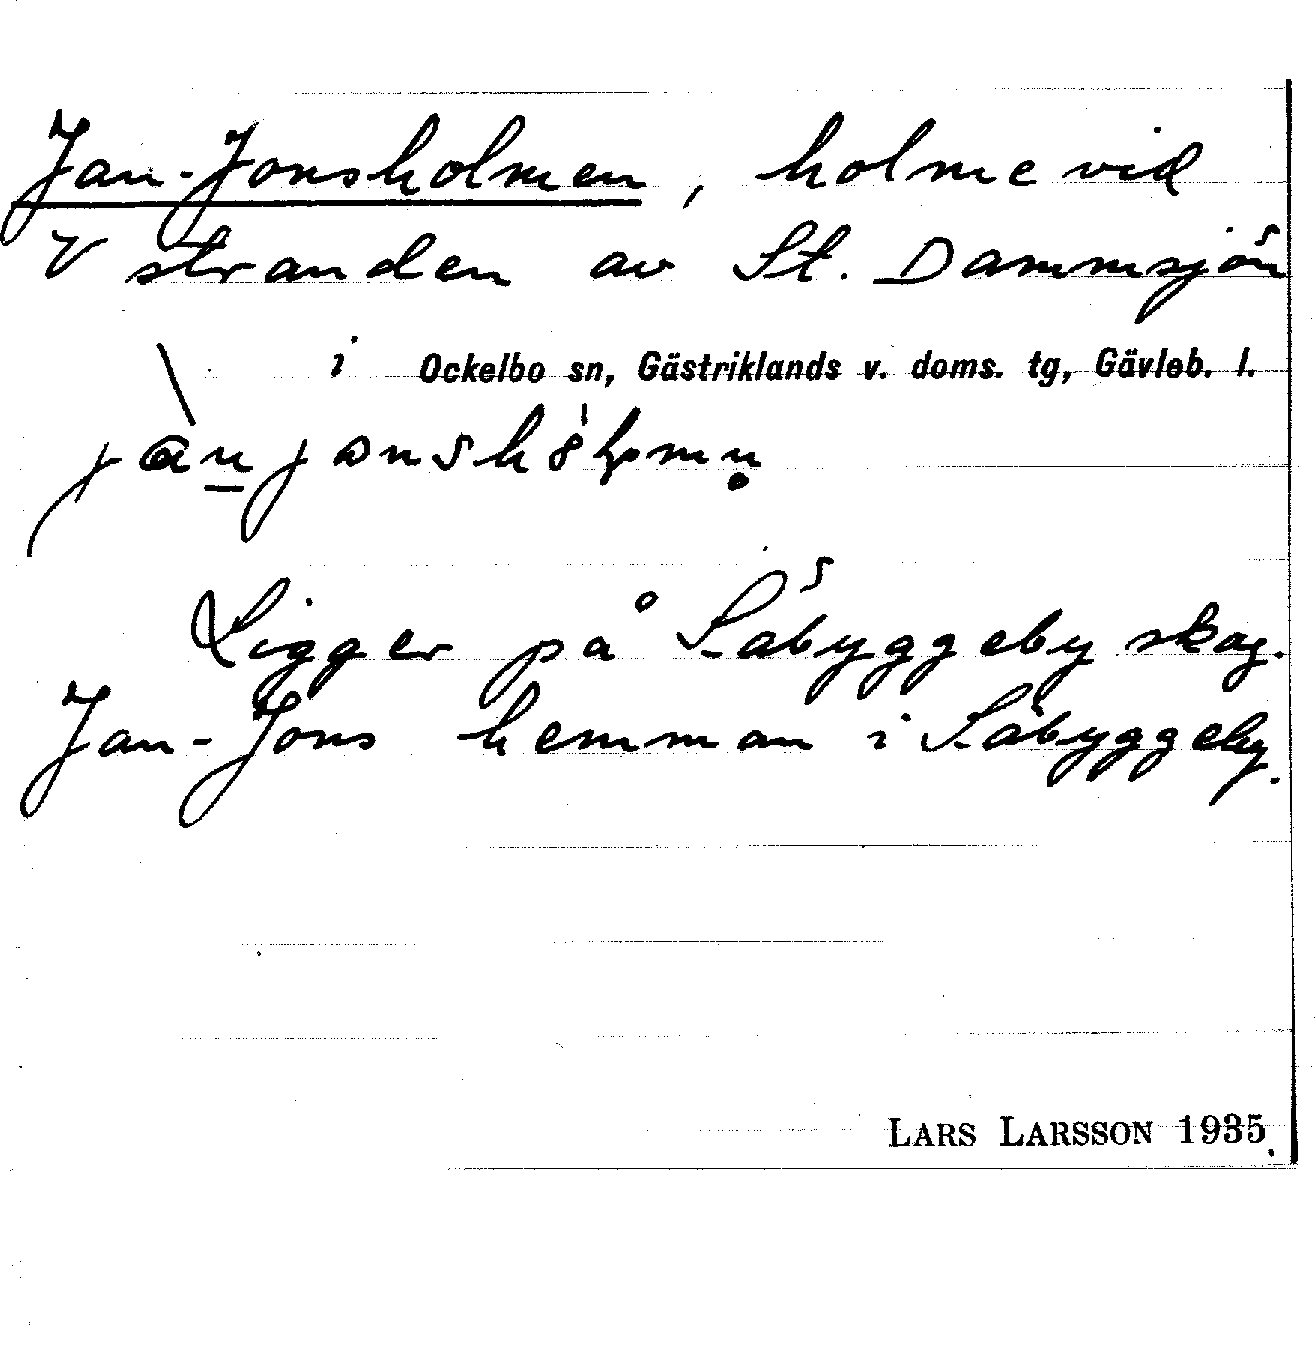 Jan-Jonsholmen, holme vid
V stranden av St. Dammsjön
i Ockelbo sn, Gästriklands v. doms. tg, Gävleb. l.
Ligger på Säbyggeby skog.
Jan-Jons hemman i Säbyggeby.
LARS LARSSON 1935.